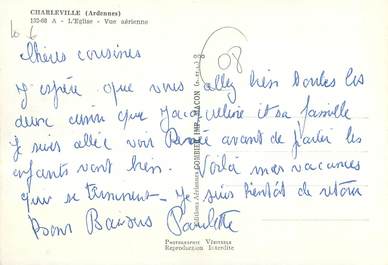 CHARLEVILLE (Ardennes)
132-68 A - L'Eglise - Vue aérienne
08
Chères cousines
J'espère que vous allez bien toutes les
deux ainsi que Jacqueline et sa famille
Je suis allée voir avant de partir les
enfants vont bien. Voilà mes vacances
qui se terminent - Je suis bientôt de retour
Bons Baisers Paulette
Editions Aériennes COMBIER IMP. MACON
PHOTOGRAPHIE VÉRITABLE
Reproduction Interdite